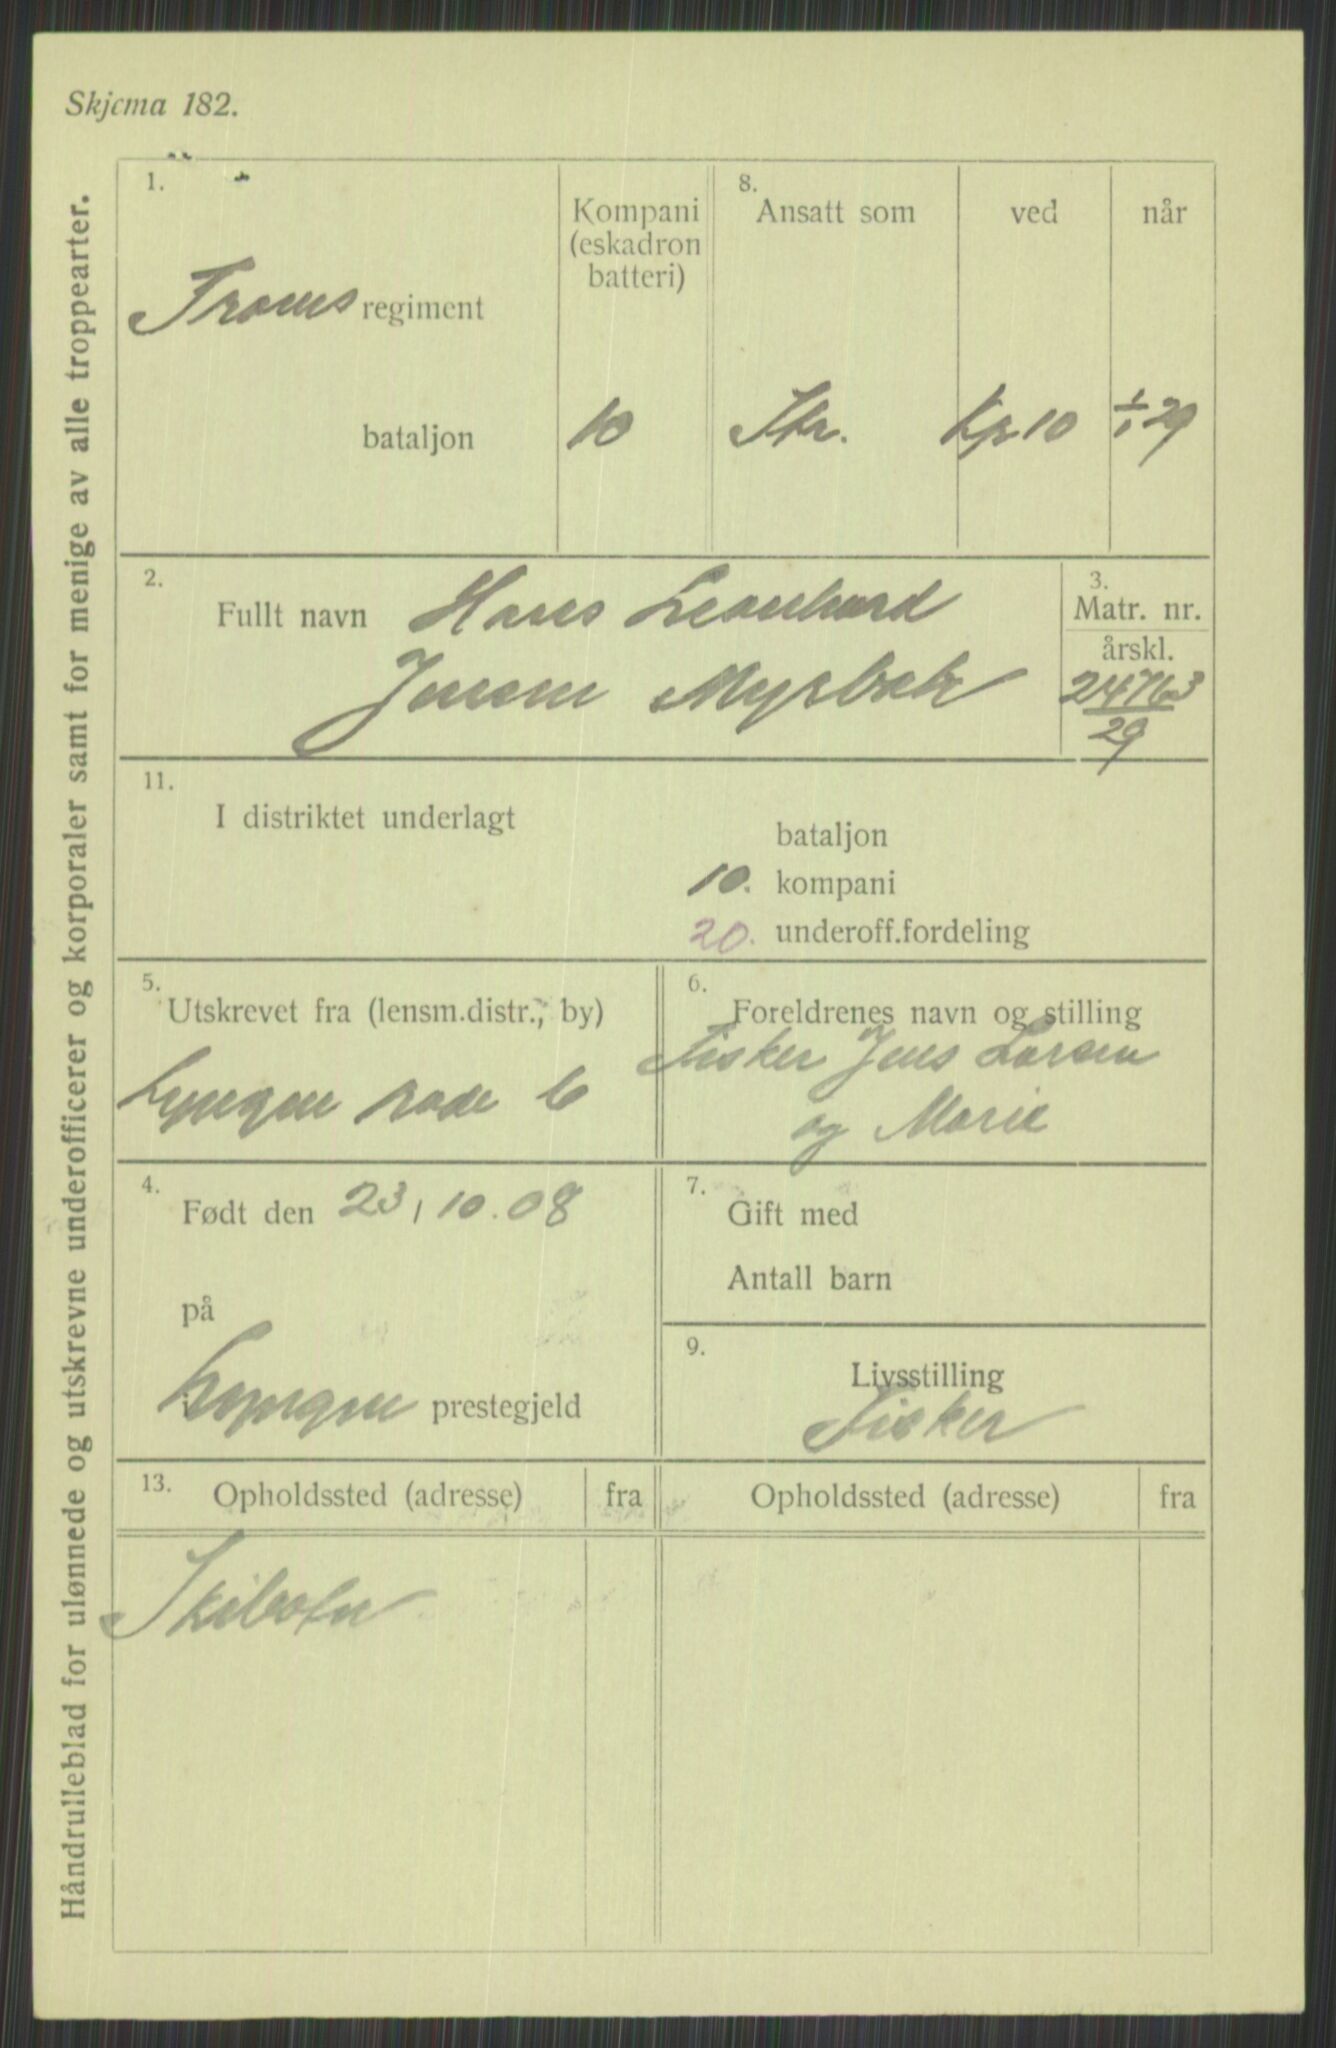 Skjema 182.
Håndrulleblad for ulønnede og utskrevne underofficerer og korporaler samt for menige av alle troppearter.
1.
Troms regiment
bataljon
Kompani
(eskadron
batteri)
10
8.
Ansatt som
ved
når
Str.
Kp 10
1/1 29
2.
Fullt navn Hans Leonhard
Jensen Myrbak
3.
Matr. nr.
årskl.
24763
29
11.
I distriktet underlagt
bataljon
10. kompani
20. underoff.fordeling
5.
Utskrevet fra (lensm.distr., by)
Lyngen rode 6
6.
Foreldrenes navn og stilling
Fisker Jens Larsen
og Marie
4.
Født den 23, 10. 08
på
Lyngen prestegjeld
7.
Gift med
Antall barn
9.
Livsstilling
Fisker
13.
Opholdssted (adresse)
fra
Opholdssted (adresse)
fra
Skibotn